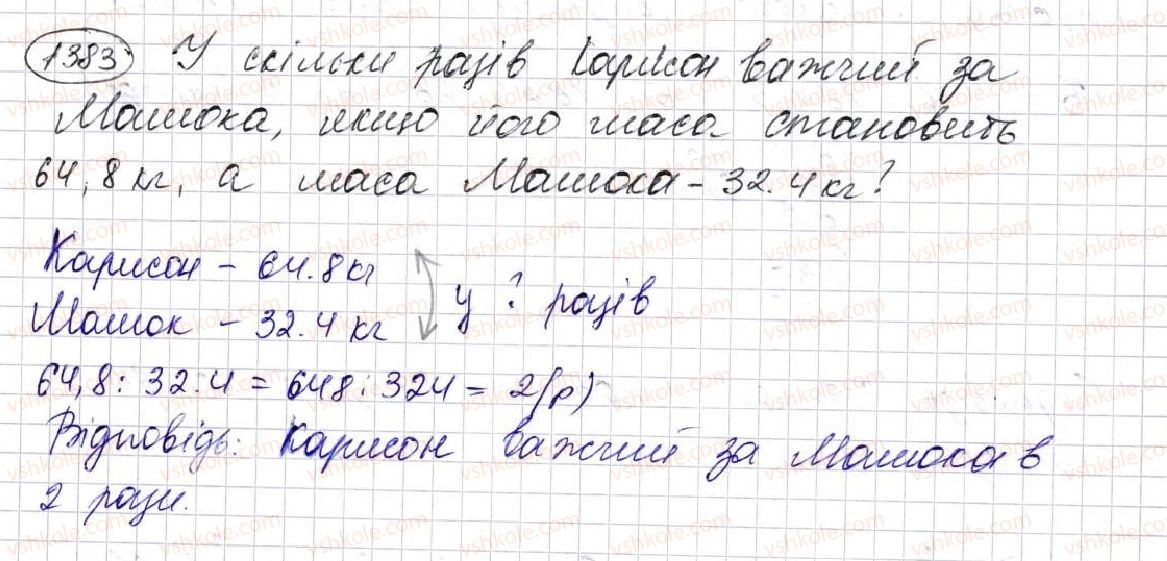 1383 У скільки разів Карлсон важчий за
Малюка, якщо його маса становить
64,8 кг, а маса Малюка - 32.4 кг?
Карлсон - 64.8 кг
у ? разів
Малюк - 32.4 кг
64,8 : 32.4 = 648 : 324 = 2 (р)
Відповідь: Карлсон важчий за Малюка в
2 рази.